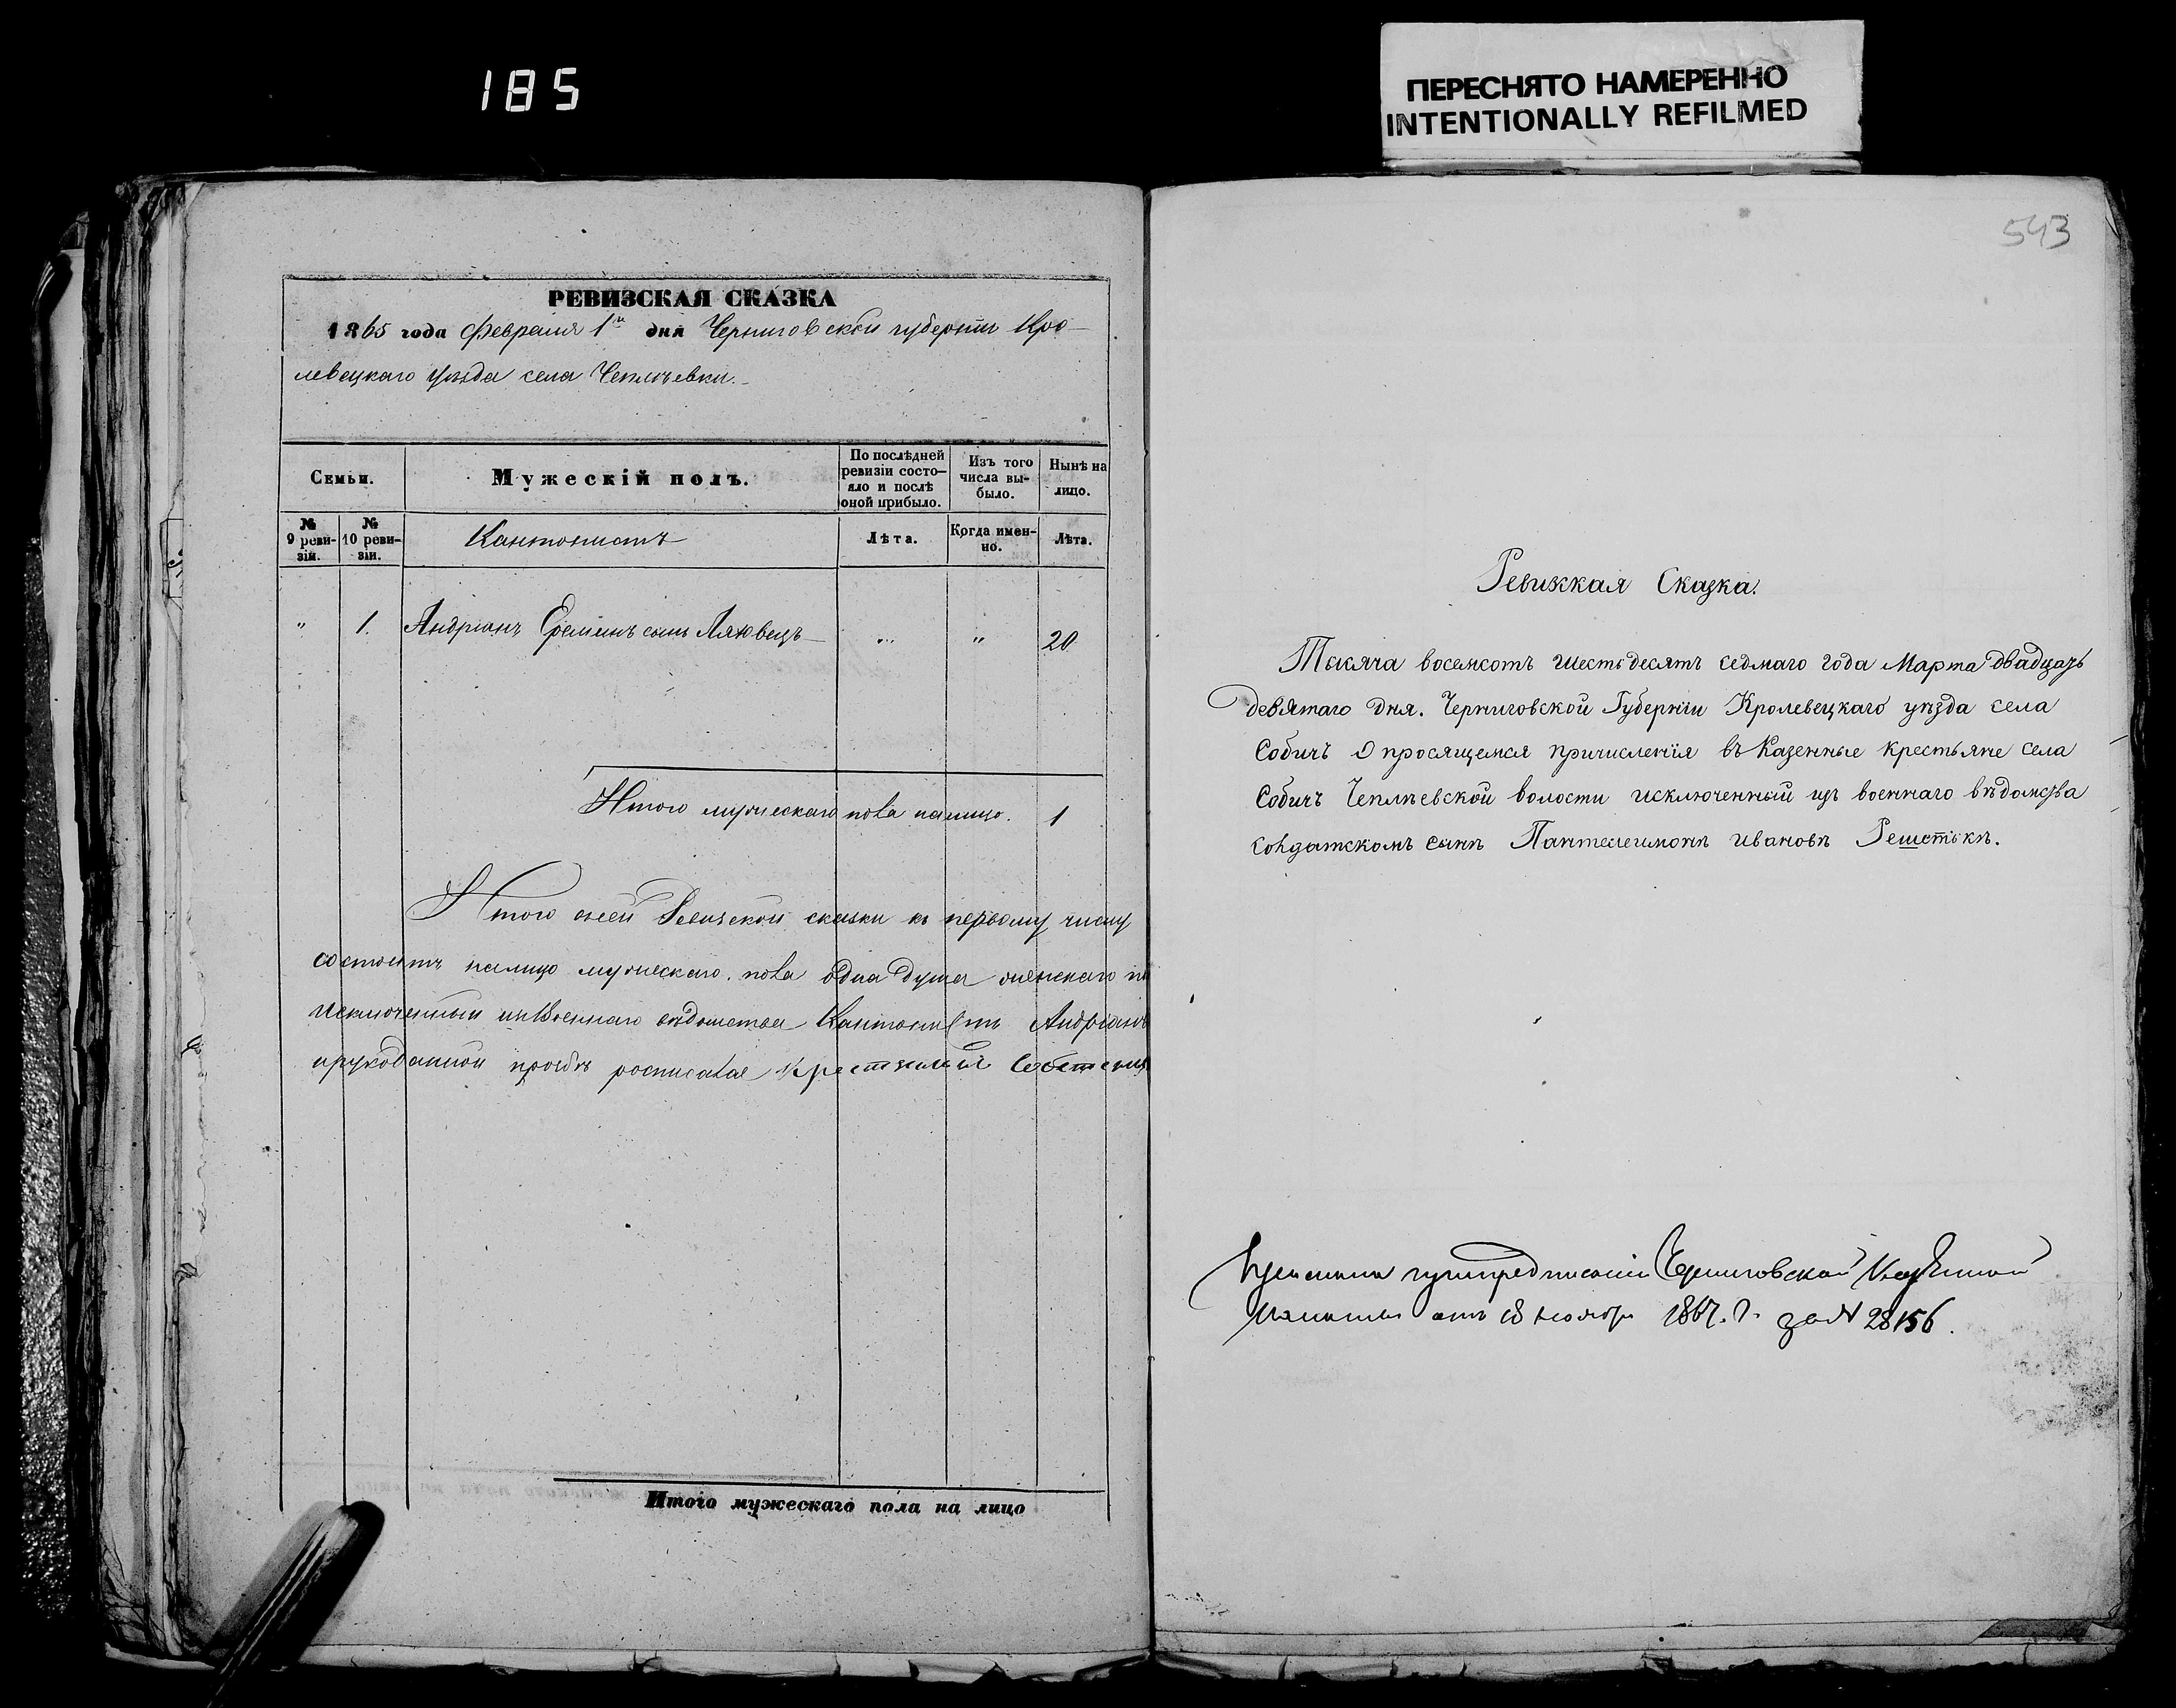 185
ПЕРЕСНЯТО НАМЕРЕННО
INTENTIONALLY REFILMED
РЕВИЗСКАЯ СКАЗКА
1865 года Февраля 1го дня Черниговской губернiи Кро-
левецкаго уѣзда села Чеплѣевки.
Семьи.
Мужескiй полъ.
По послѣдней
ревизiи состо-
яло и послѣ
оной прибыло.
Изъ того
числа вы-
было.
Нынѣ на
лицо.
№
9 реви-
зiи.
№
10 реви-
зiи.
Кантонистъ
Лѣта.
Когда имен-
но.
Лѣта.
" 1. Андрiанъ сынъ Ляховецъ " " 20
Итого мужескаго пола налицо. 1
Итого Ревизской сказки къ первому числу
состоитъ налицо мужескаго пола одна душа женскаго
исключенный военнаго вѣдомства Кантонистъ Андрiанъ
рукоданной прозбѣ росписался
Итого мужескаго пола на лицо
543
Ревижкая Сказка.
Тысяча восемсотъ шестьдесятъ седмаго года Марта двадцать
девятаго дня. Черниговской Губернiи Кролевецкаго уѣзда села
Собичъ О просящемся причисленiя въ Казенные крестьяне села
Собичъ Чеплѣевской волости исключенный изъ военнаго вѣдомства
солдатскомъ сынѣ Пантелеимонѣ Ивановѣ Решетькѣ.
Черниговской Казенной
Палаты отъ 18 ноября 1867. г. за № 28156.